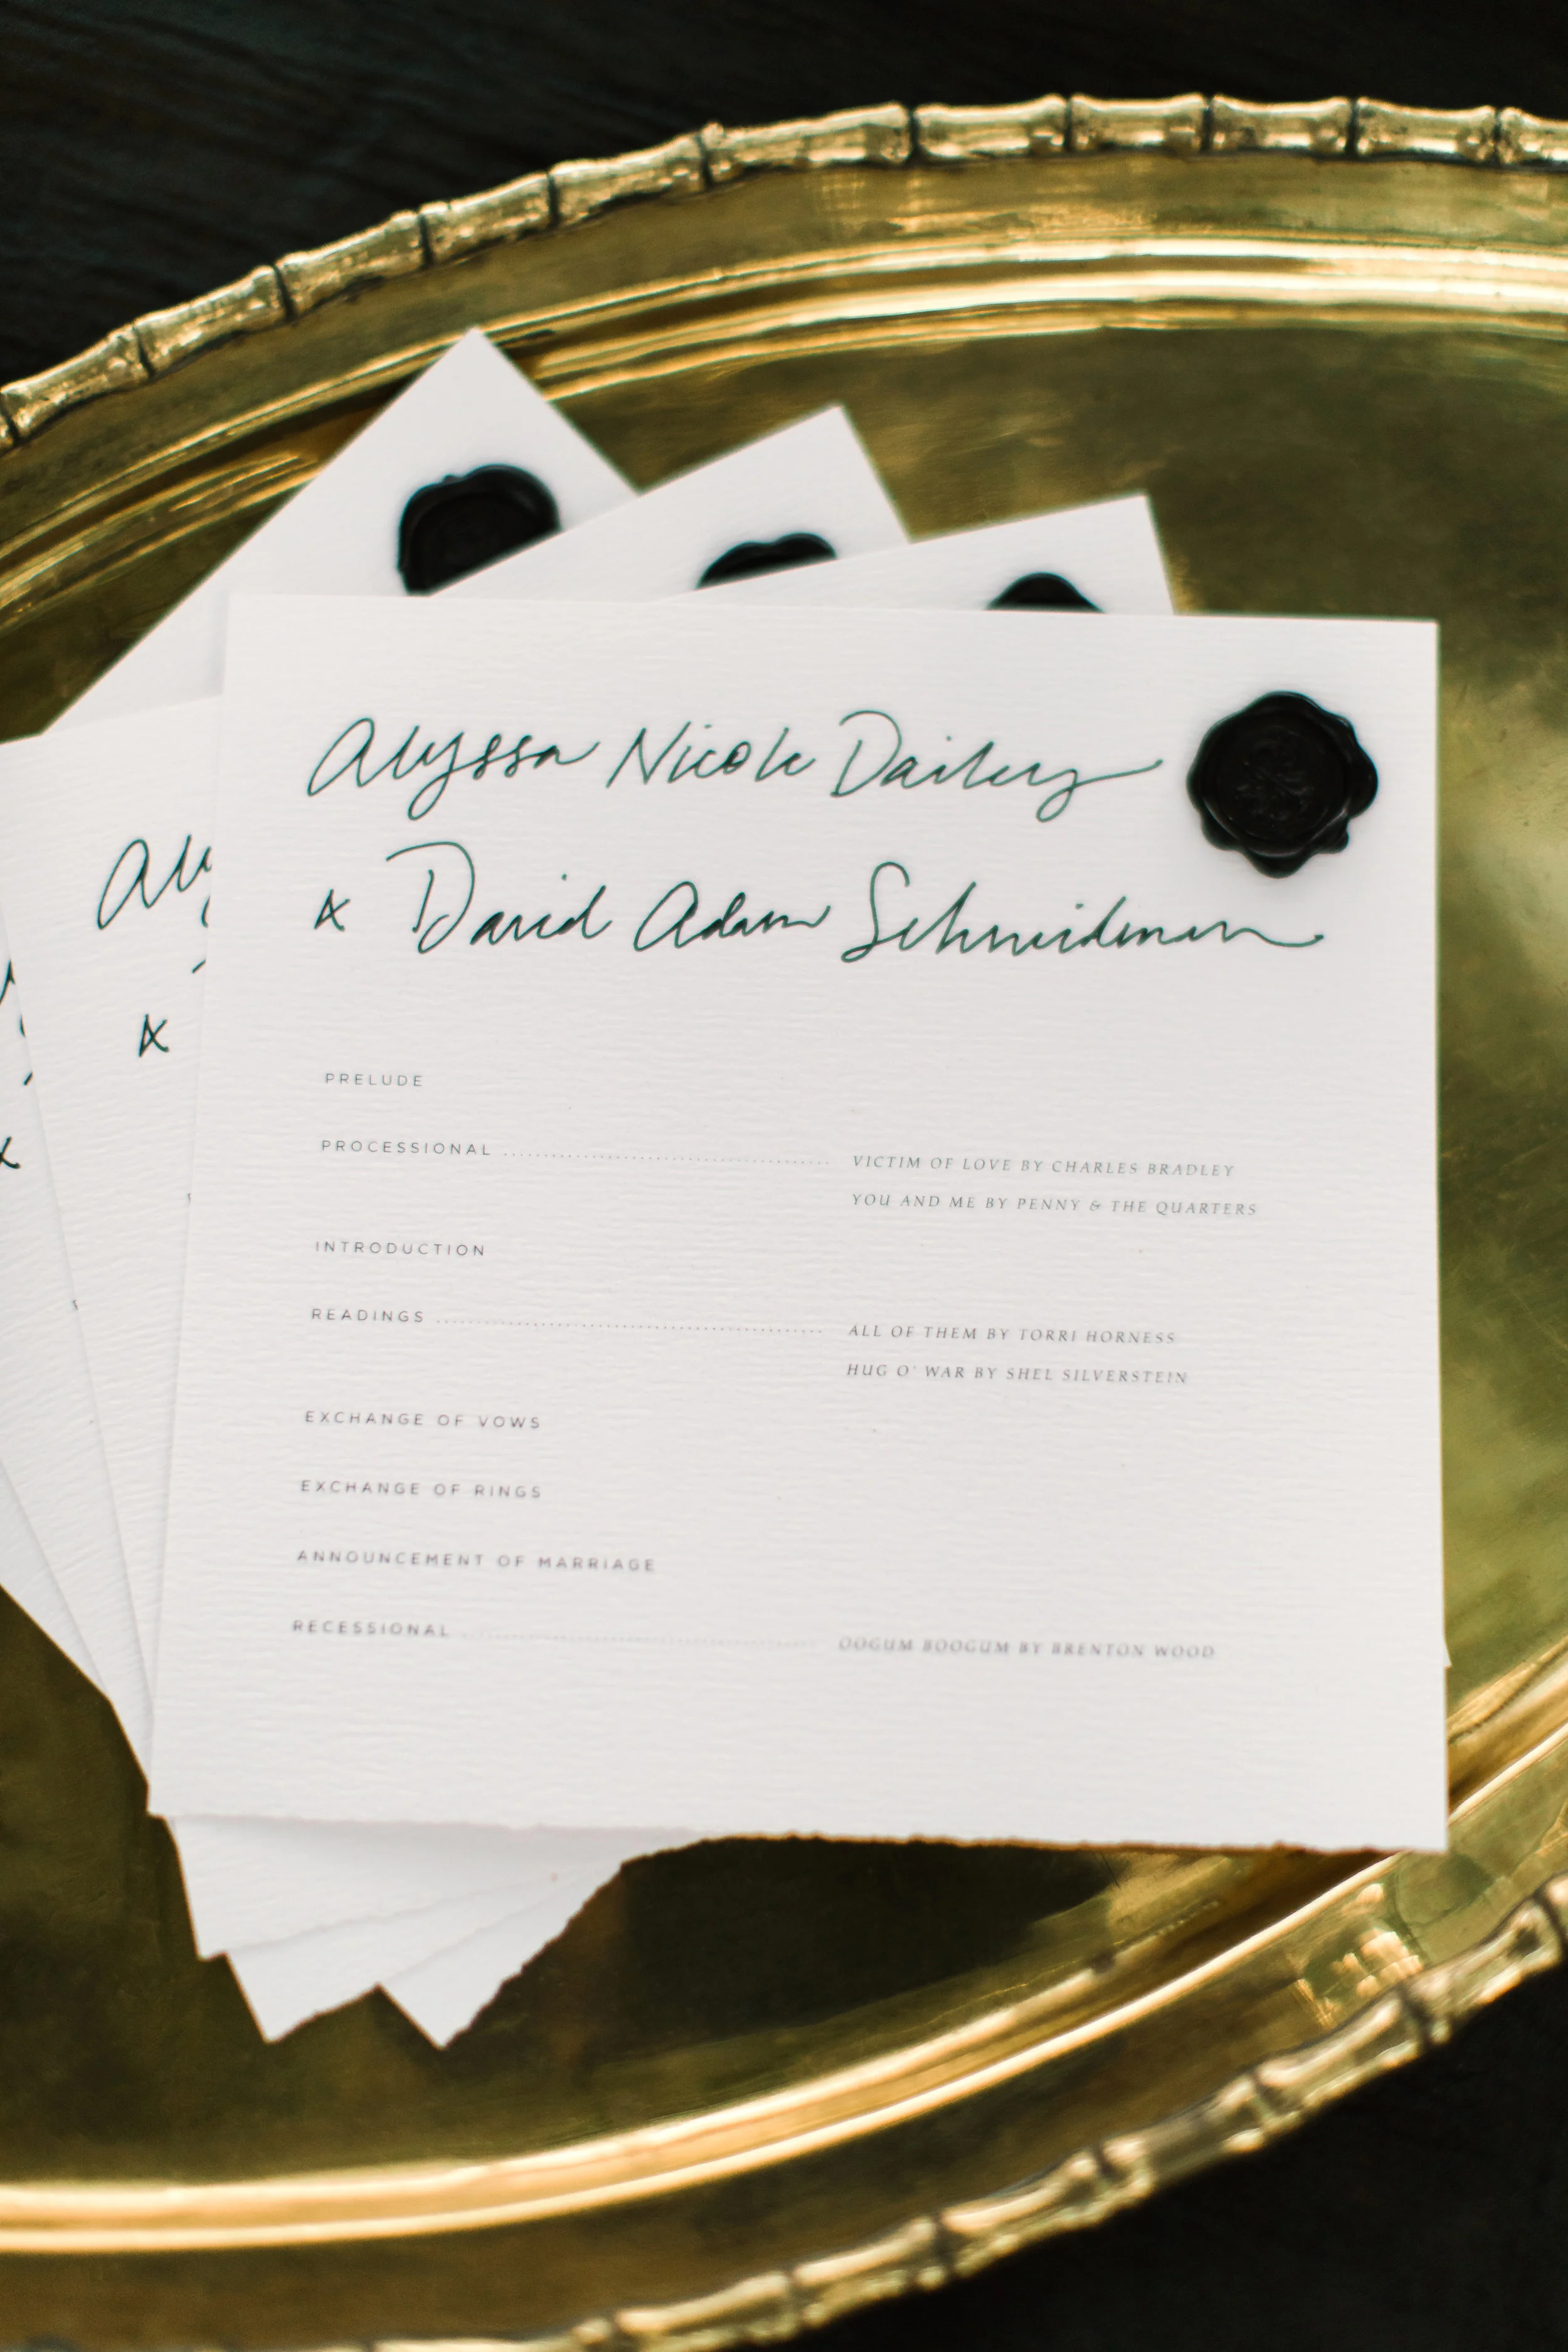 Alyssa Nicole Dailey
& David Adam Schneidman
PRELUDE
PROCESSIONAL .......... VICTIM OF LOVE BY CHARLES BRADLEY
YOU AND ME BY PENNY & THE QUARTERS
INTRODUCTION
READINGS .......... ALL OF THEM BY TORRI HORNESS
HUG O' WAR BY SHEL SILVERSTEIN
EXCHANGE OF VOWS
EXCHANGE OF RINGS
ANNOUNCEMENT OF MARRIAGE
RECESSIONAL .......... OOGUM BOOGUM BY BRENTON WOOD
Aly
&